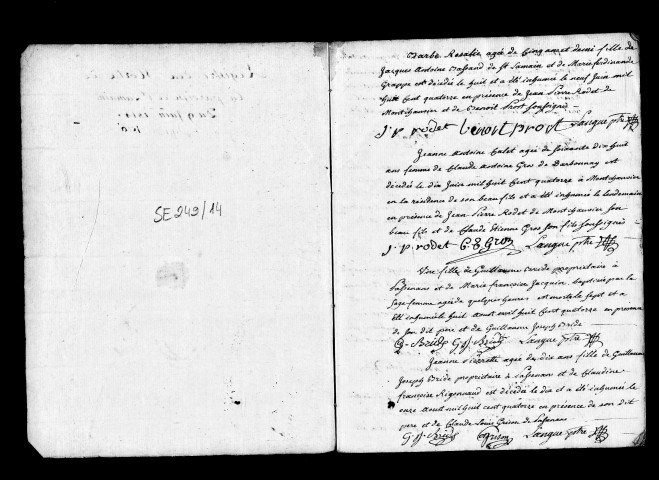 SE 249/14
Barbe Rosalie agée de Cinq ans et demi fille de
Jacques Antoine Vassaud de St Lamain et de Marie ferdinande
Grappe est décédée le huit et a été inhumée le neuf Juin mil
huit Cent quatorze en présence de Jean Pierre Rodet de
Montchauvier et de Benoit Prost soussignés
J. p. rodet benoit prost Langue ptre
Jeanne Antoine Calet agée de soixante dix huit
ans femme de Claude Antoine Gros de Darbonnay est
décédée le dix Juin mil huit Cent quatorze à Montchauvier
en la résidence de son beau fils et a été inhumée le lendemain
en présence de Jean Pierre Rodet de Montchauvier son
beau fils et de Claude Etienne Gros son fils soussignés
J. p. rodet C. E. Gros Langue ptre
Une fille de Guillaume Bride propriétaire à
Passenans et de Marie françoise Jacquin, baptisée par la
sage femme agée de quelques heures est morte le sept et a
été inhumée le huit Aout mil huit Cent quatorze en présence
de son dit pere et de Guillaume Joseph Bride
G. Bride G. J. Bride Langue ptre
Jeanne Pierrette agée de dix ans fille de Guillaume
Joseph Bride propriétaire à Passenans et de Claudine
françoise Rigonnaud est décédée le dix et a été inhumée le
onze Aout mil huit cent quatorze en présence de son dit
pere et de Claude Louis Grison de Passenans
G. J. Bride Grison Langue ptre